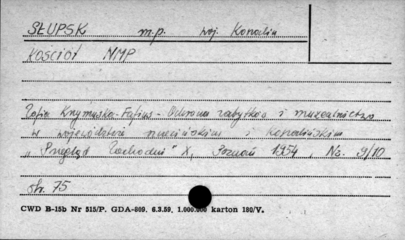 SŁUPSK m.p. woj. Koszalin
Kościół NMP
Zofia Krzymuska-Fafius - Ochrona zabytków i muzealnictwo
w województwie szczecińskim i koszalińskim
"Przegląd Zachodni" X, Poznań 1954, No. 9/10
str. 75
CWD B-15b Nr 515/P. GDA-809. 6.3.59. 1.000.000 karton 180/V.